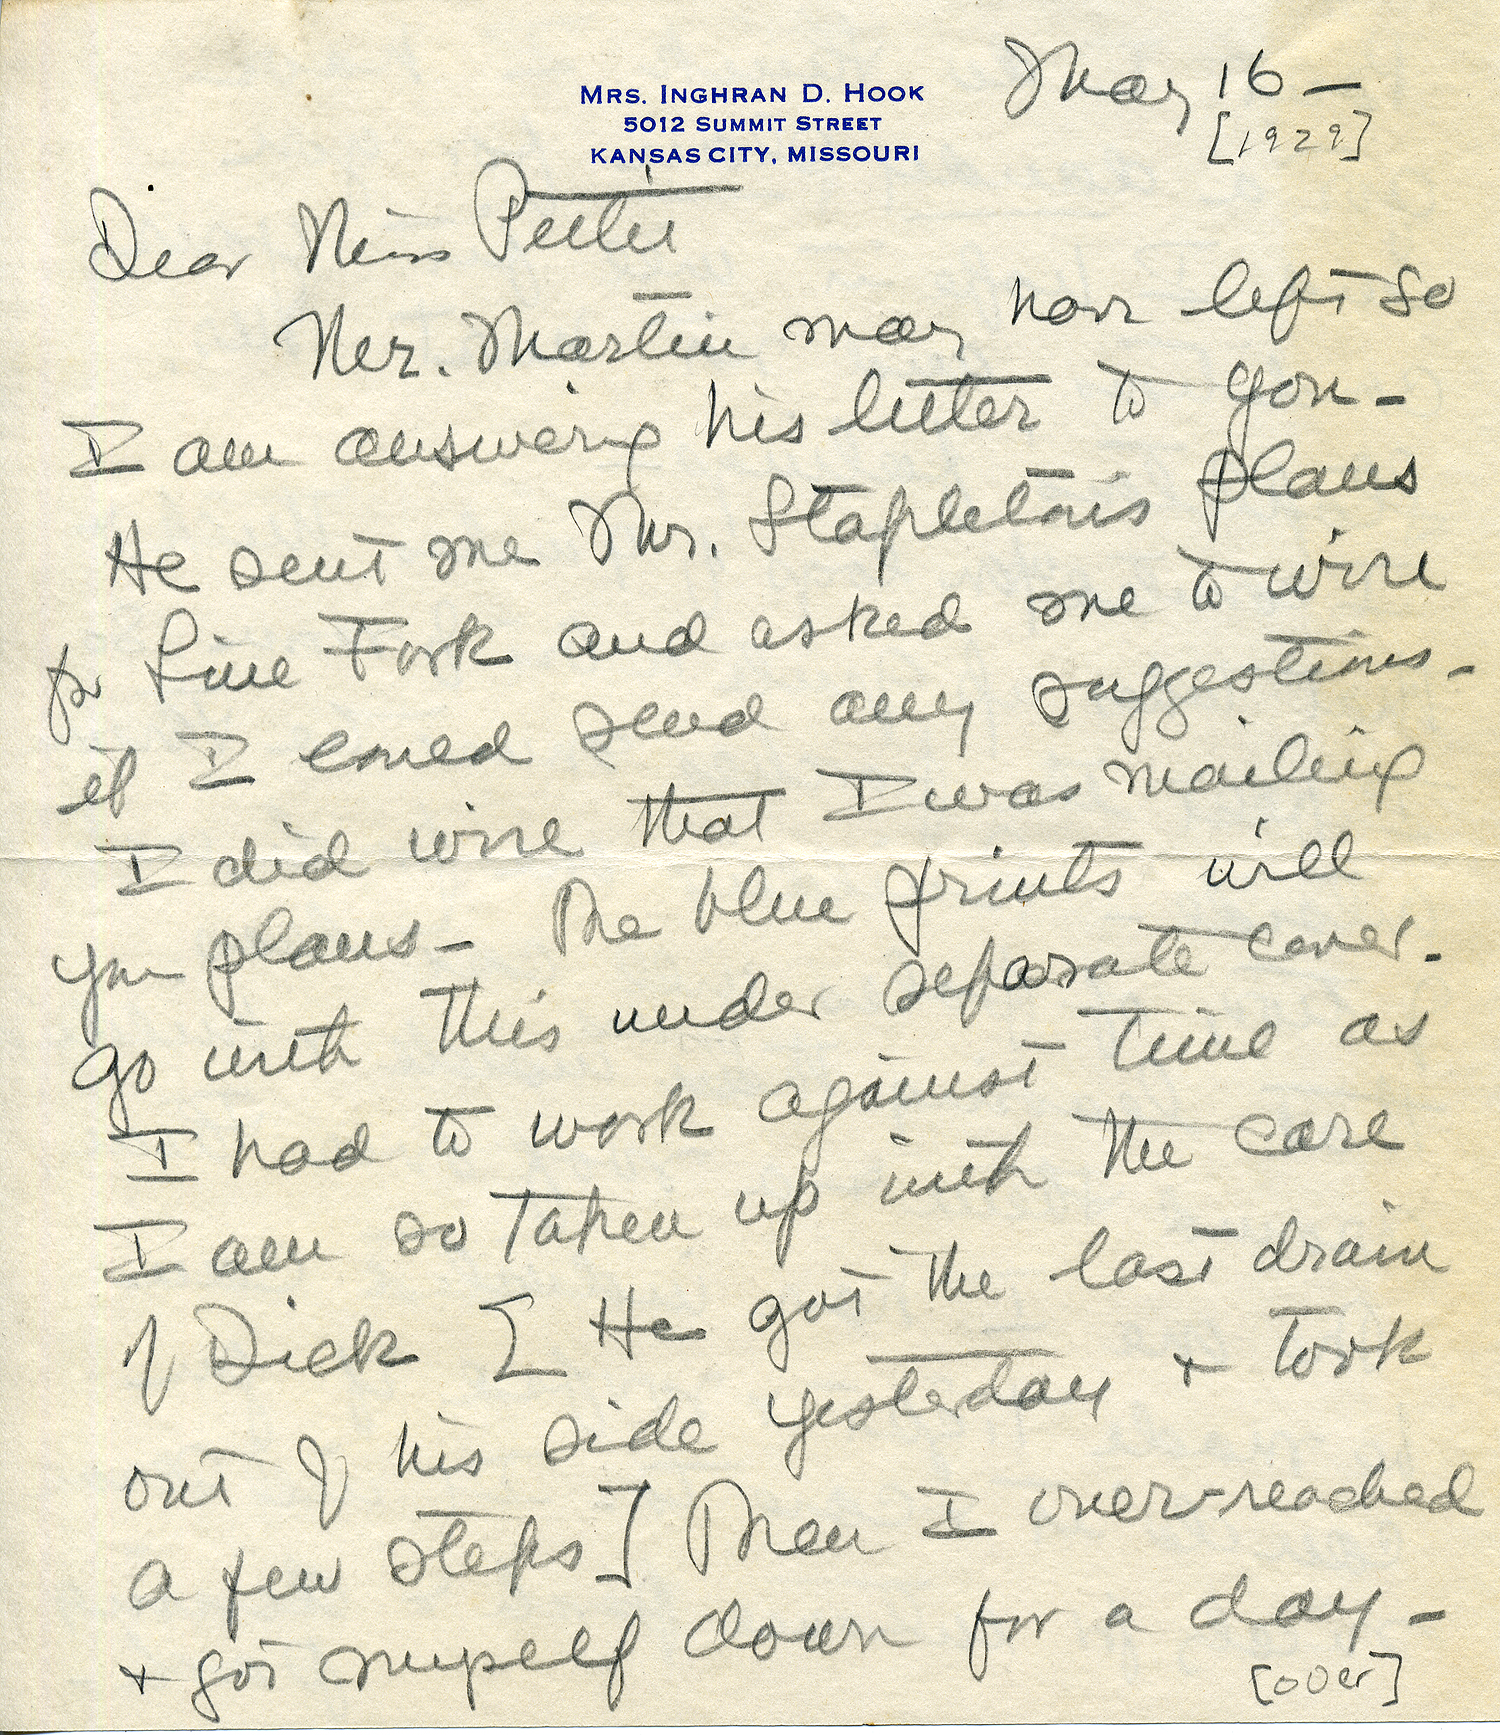 MRS. INGHRAN D. HOOK
5012 SUMMIT STREET
KANSAS CITY, MISSOURI
May 16 –
[1929]
Dear Miss Pettit
Mr. Martin may have left so
I am answering his letter to you –
He sent me Mr. Stapleton's plans
for Line Fork and asked me to wire
if I could send any suggestions. –
I did wire that I was mailing
you plans – The blue prints will
go with this under separate cover. –
I had to work against time as
I am so taken up with the care
of Dick [ He got the last drain
out of his side yesterday + took
a few steps ] Then I over-reached
+ got myself down for a day –
[over]